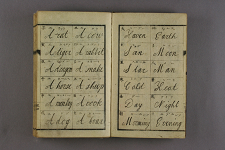 A rat A cow
A tiger A rabbit
A dragon A snake
A horse A sheep
A monkey A cock
A dog A boar
Heaven Earth
Sun Moon
Star Man
Cold Heat
Day Night
Morning Evening